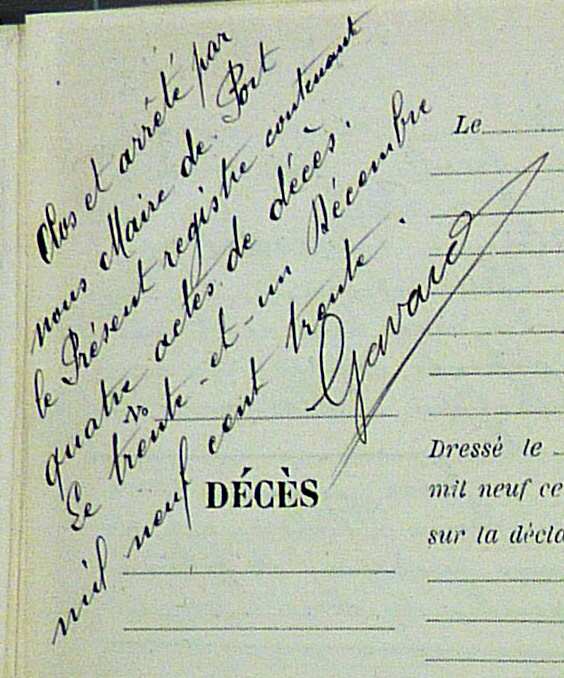 Clos et arrêté par
nous Maire de Port
le Présent registre contenant
quatre actes de décès.
Le trente-et-un Décembre
mil neuf cent trente.
Gavard
No
DÉCÈS
Le
Dressé le
mil neuf ce
sur la décla